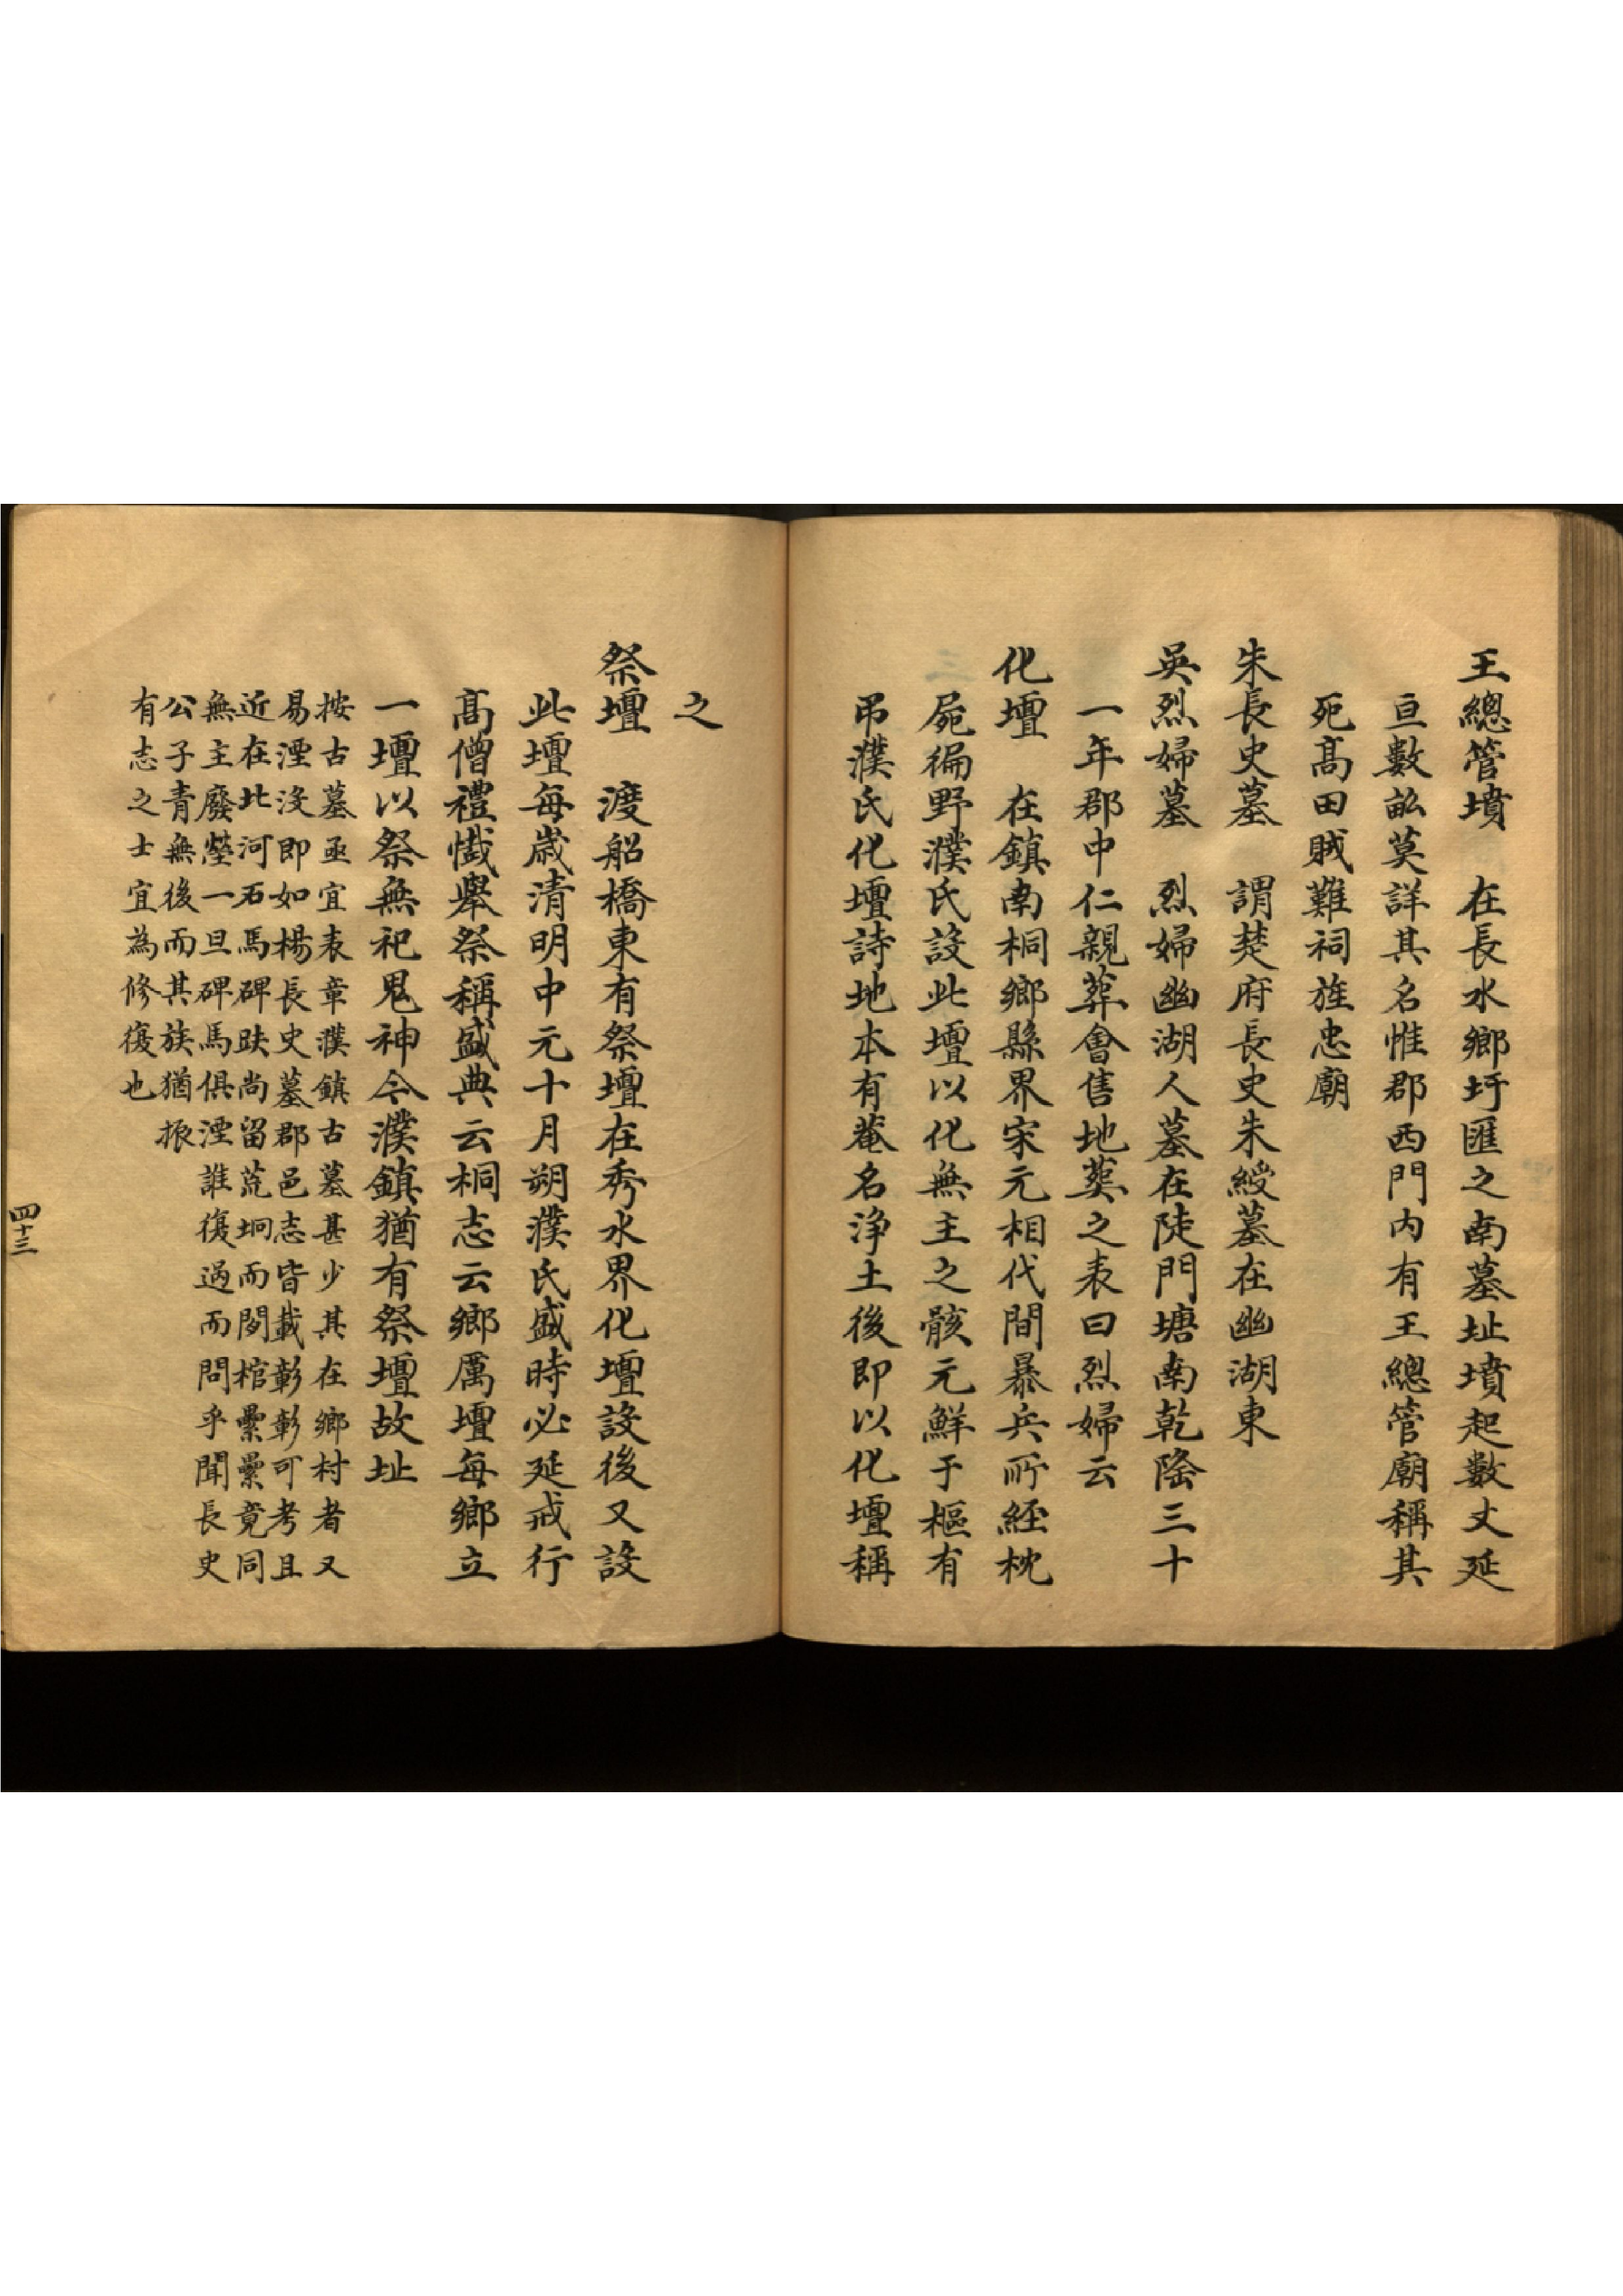 王總管墳　在長水鄉圩匯之南墓址墳起數丈延
亘數畝莫詳其名惟郡西門内有王總管廟稱其
死髙田賊難祠旌忠廟
朱長史墓　謂楚府長史朱綬墓在幽湖東
吳烈婦墓　烈婦幽湖人墓在陡門塘南乾隆三十
一年郡中仁親葬會售地葬之表曰烈婦云
化壇　在鎮南桐鄉縣界宋元相代間暴兵所經枕
屍徧野濮氏設此壇以化無主之骸元鮮于樞有
弔濮氏化壇詩地本有菴名浄土後即以化壇稱
之
祭壇　渡船橋東有祭壇在秀水界化壇設後又設
此壇每歲清明中元十月朔濮氏盛時必延戒行
髙僧禮懺舉祭稱盛典云桐志云鄉厲壇每鄉立
一壇以祭無祀鬼神今濮鎮猶有祭壇故址
按古墓亟宜表章濮鎮古墓甚少其在鄉村者又
易湮沒即如楊長史墓郡邑志皆載彰彰可考且
近在北河石馬碑趺尚留荒坰而閲棺纍纍竟同
無主廢塋一旦碑馬俱湮誰復過而問乎聞長史
公子青無後而其族猶振
有志之士宜為修復也
四十三